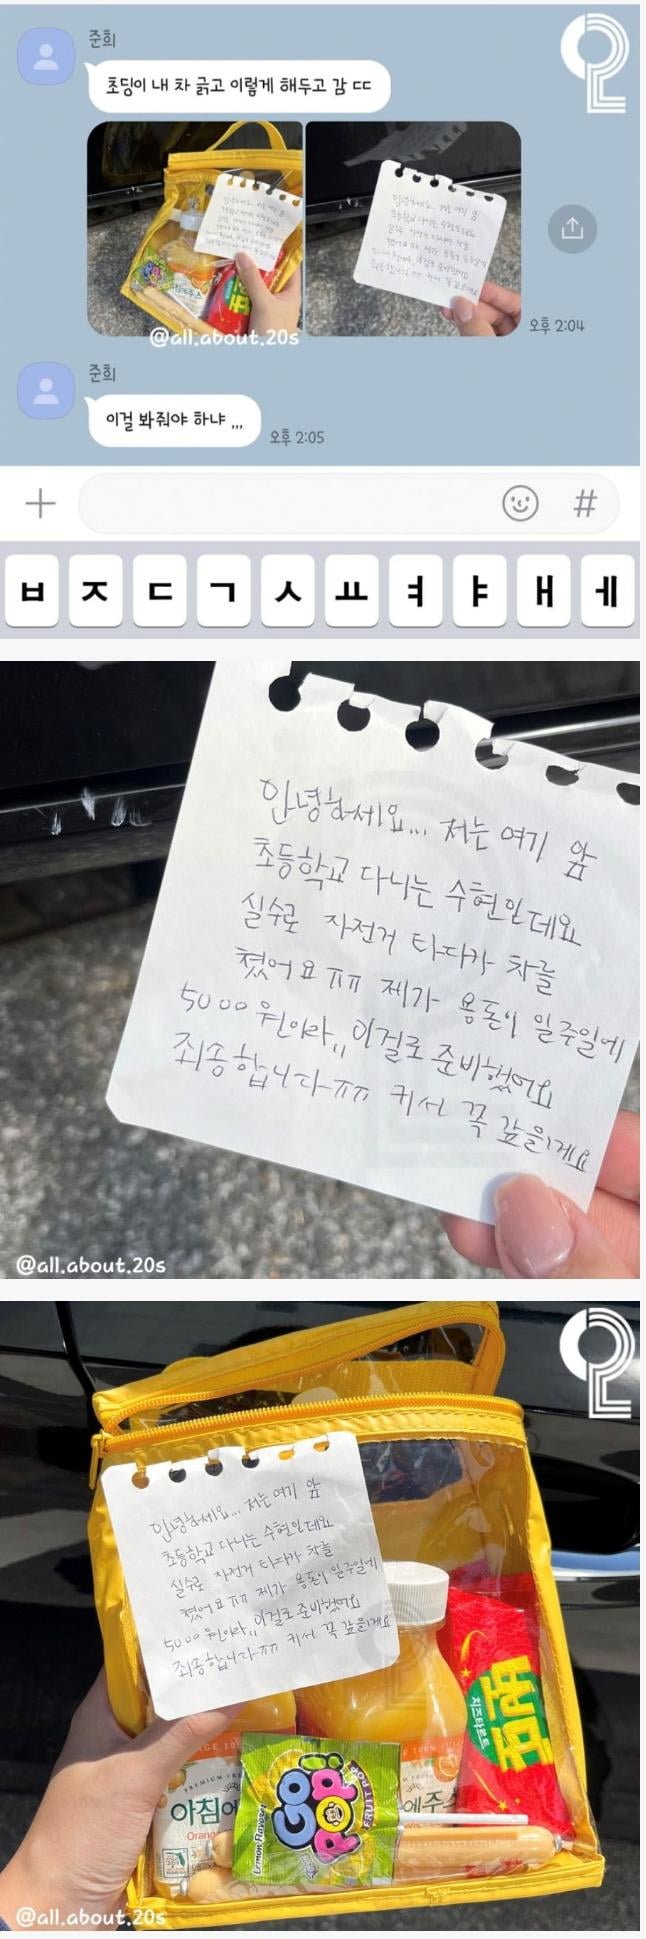 준희
초딩이 내 차 긁고 이렇게 해두고 감 ㄷㄷ
@all.about.20s
오후 2:04
준희
이걸 봐줘야 하냐 ,,,
오후 2:05
+
#
ㅂ ㅈ ㄷ ㄱ ㅅ ㅛ ㅕ ㅑ ㅐ ㅔ
안녕하세요... 저는 여기 앞
초등학교 다니는 수현인데요
실수로 자전거 타다가 차를
쳤어요ㅠㅠ 제가 용돈이 일주일에
5000원이라,, 이걸로 준비했어요
죄송합니다ㅠㅠ 커서 꼭 갚을게요
@all.about.20s
안녕하세요... 저는 여기 앞
초등학교 다니는 수현인데요
실수로 자전거 타다가 차를
쳤어요ㅠㅠ 제가 용돈이 일주일에
5000원이라,, 이걸로 준비했어요
죄송합니다ㅠㅠ 커서 꼭 갚을게요
치즈타르트
PREMIUM
아침에
Orange
에주스
100% JUICE
GO
POP!
FRUIT POP
Lemon Flavored
@all.about.20s